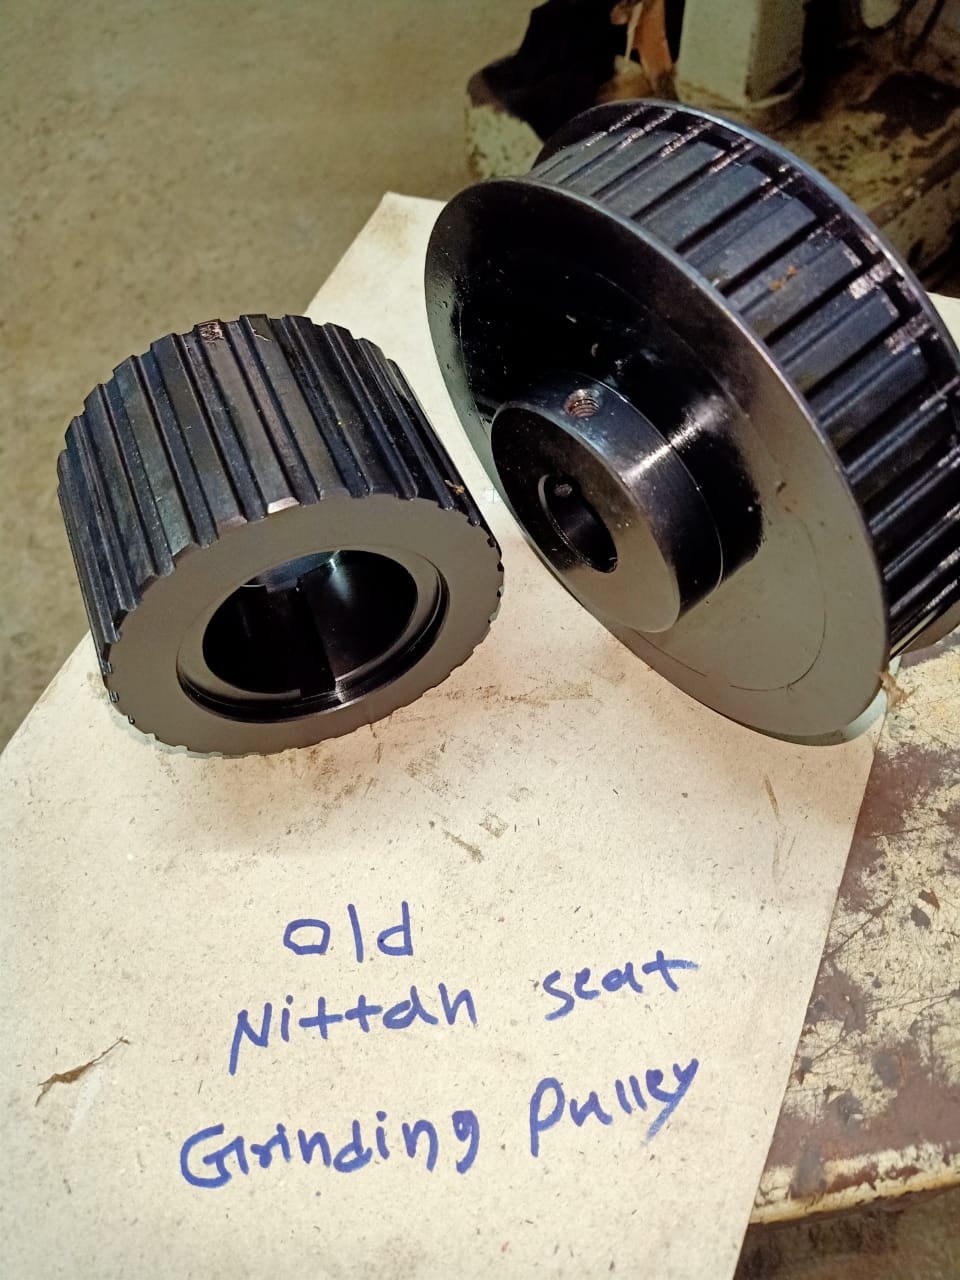 old
Nittan seat
Grinding Pulley